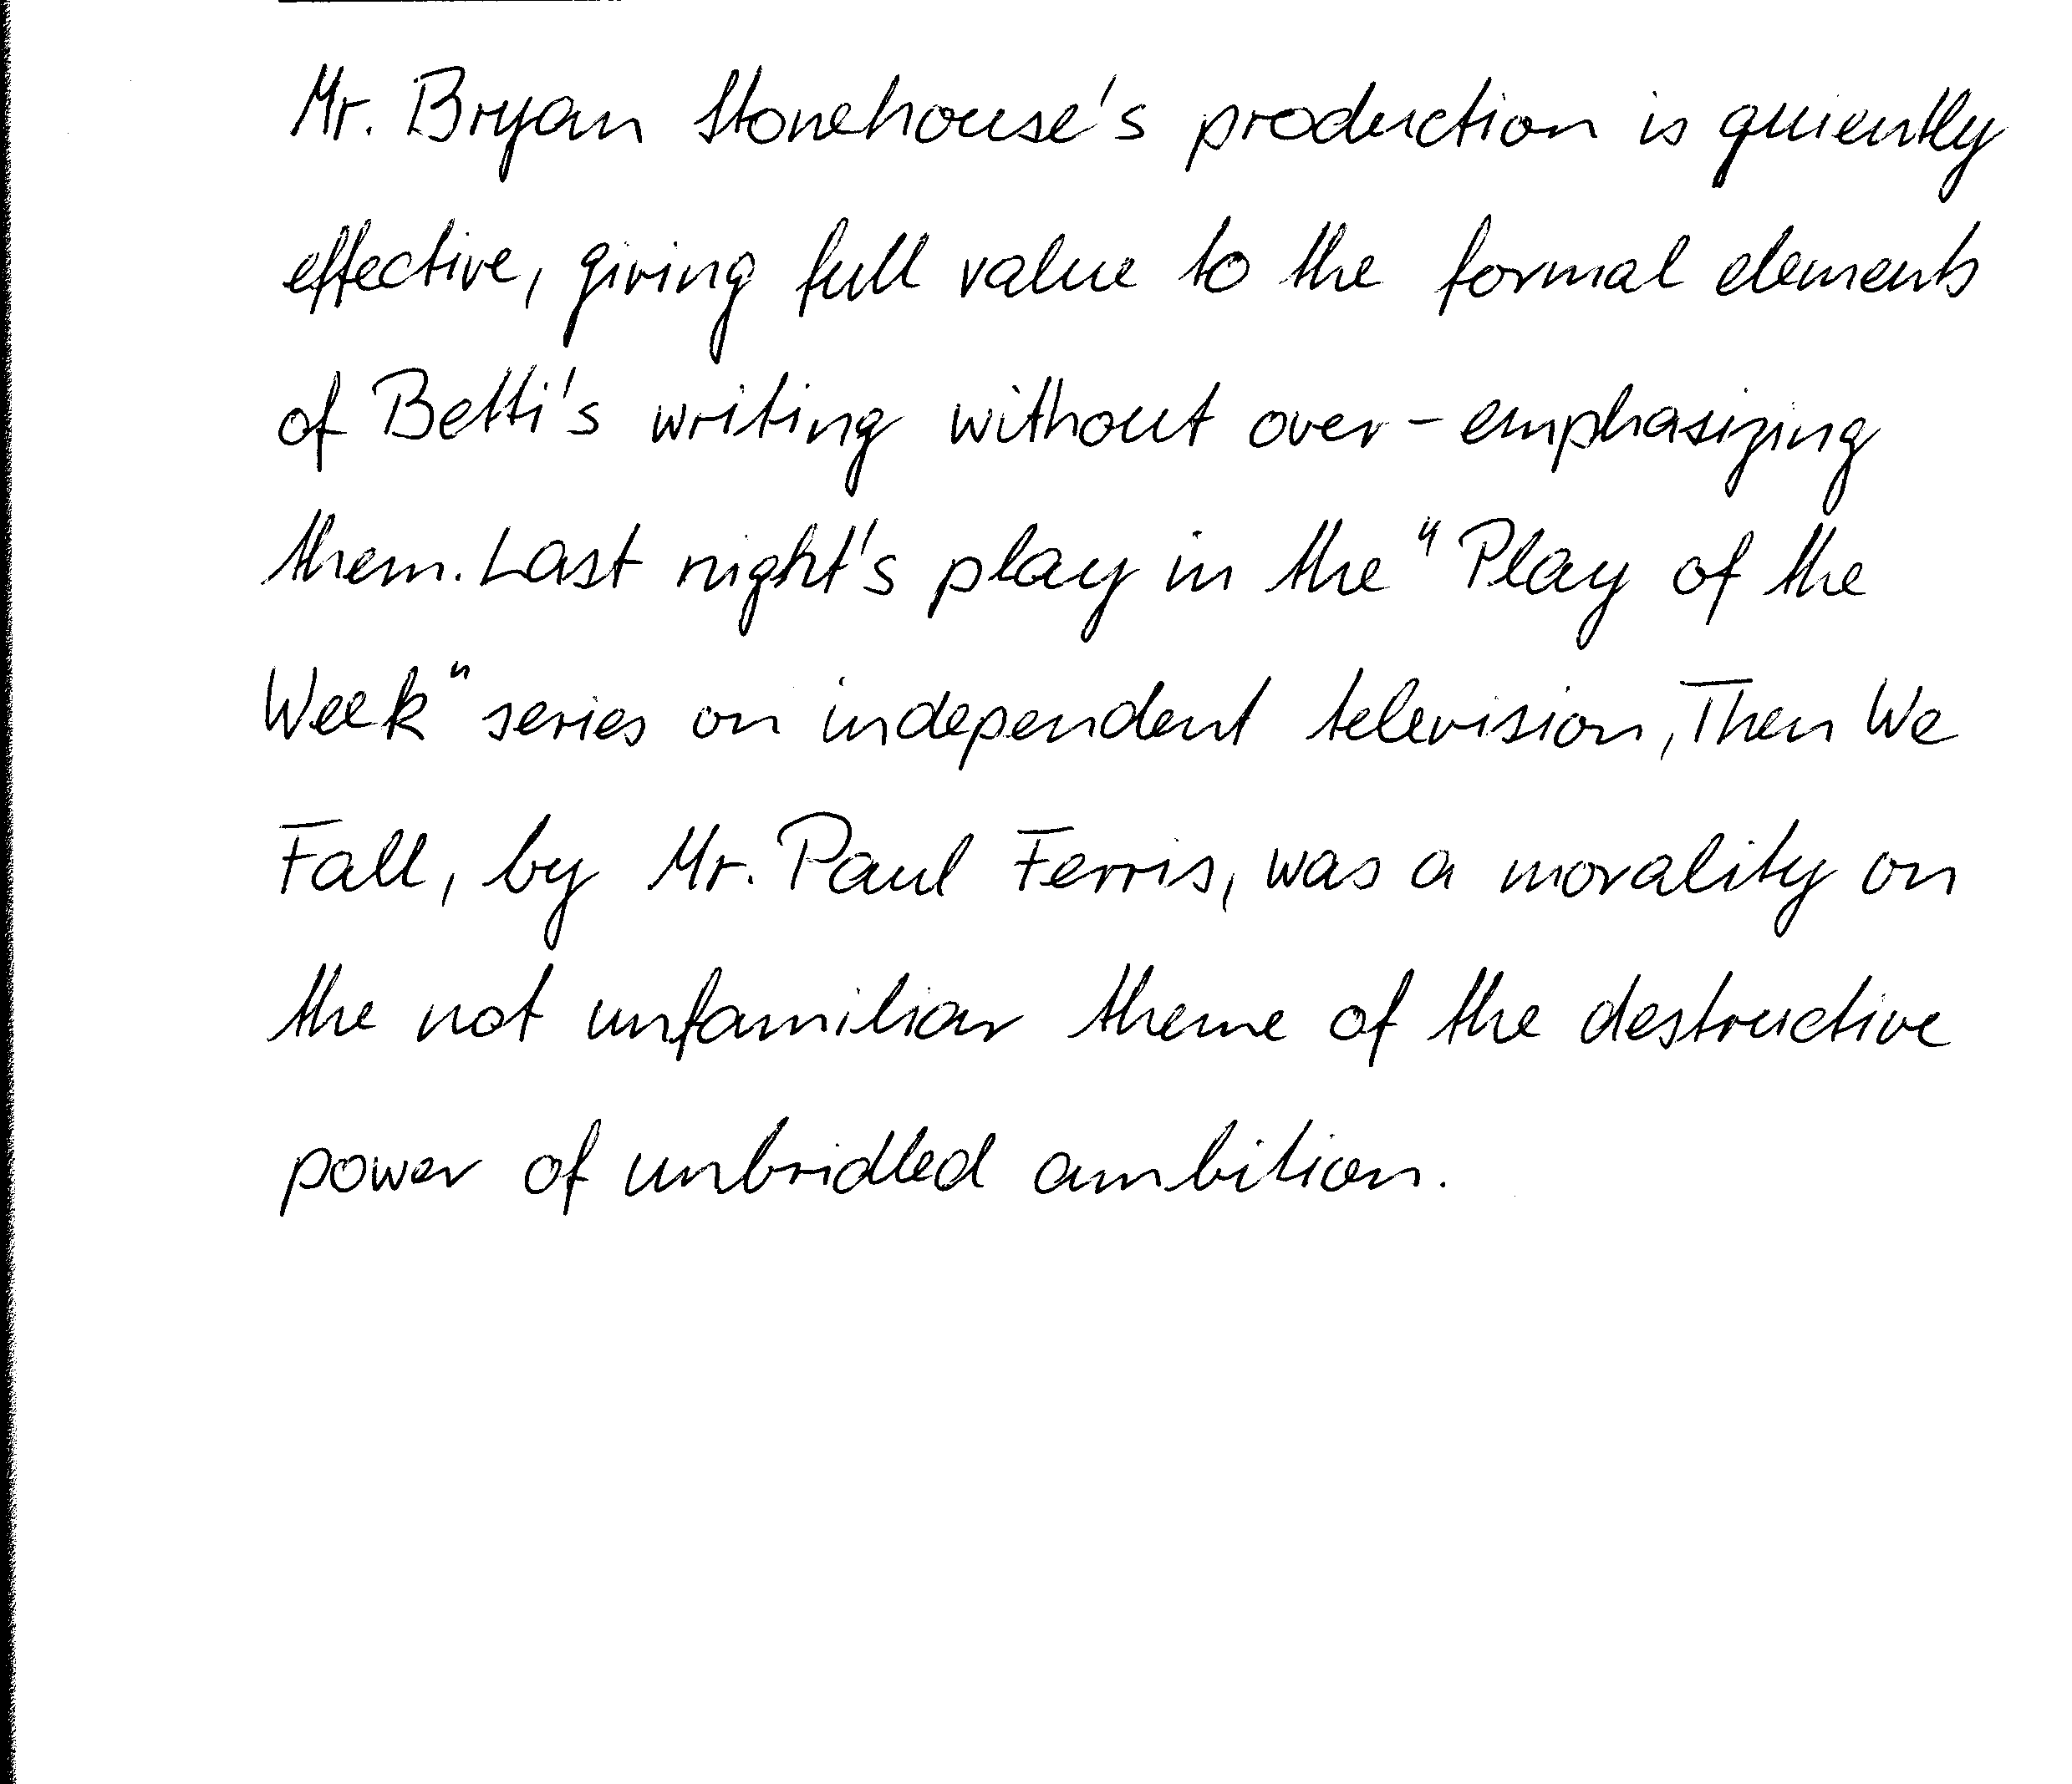 Mr. Bryan Stonehouse's production is quiently
effective, giving full value to the formal elements
of Betti's writing without over-emphasizing
them. Last night's play in the "Play of the
Week" series on independent television, Then We
Fall, by Mr. Paul Ferris, was a morality on
the not unfamiliar theme of the destructive
power of unbridled ambition.